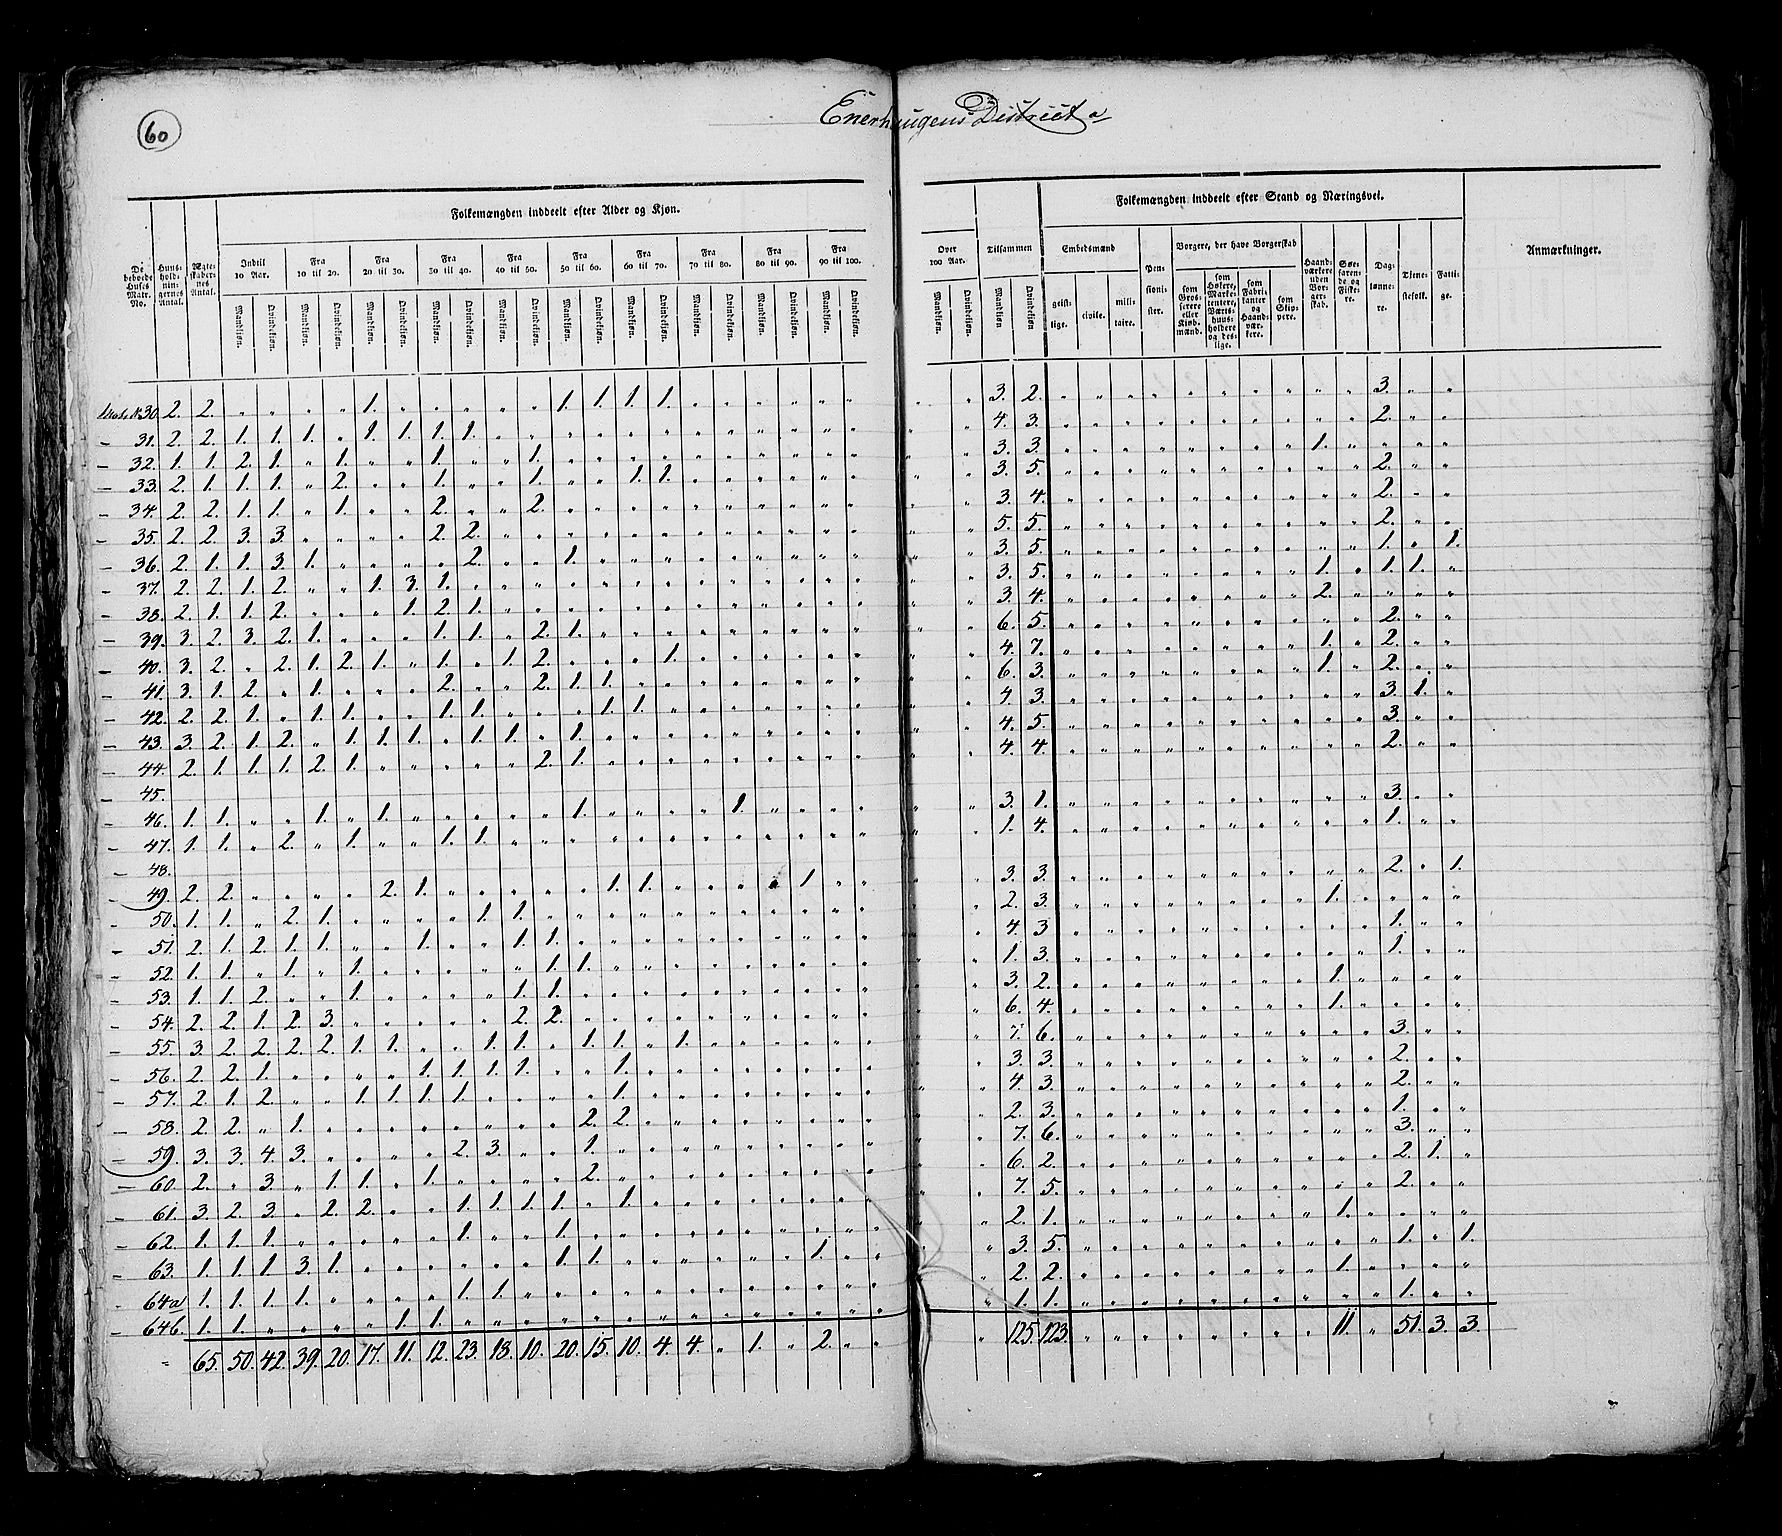 60
Enerhaugens District a
Folkemængden inddeelt efter Alder og Kjøn.
Folkemængden inddeelt efter Stand og Næringsvei.
De beboede Huses Matr. No.
Huusholdningernes Antal.
Ægteskabernes Antal.
Indtil 10 Aar.
Fra 10 til 20.
Fra 20 til 30.
Fra 30 til 40.
Fra 40 til 50.
Fra 50 til 60.
Fra 60 til 70.
Fra 70 til 80.
Fra 80 til 90.
Fra 90 til 100.
Over 100 Aar.
Tilsammen
Embedsmænd
geistlige.
civile.
militaire.
Pensionister.
Borgere, der have Borgerskab
som Grosserere eller Kjøbmænd.
som Høkere, Marketentere, Værtshuusholdere og deslige.
som Fabrikanter og Haandværkere.
som Slippere.
Haandværkere uden Borgerskab.
Søefarende og Fiskere.
Daglønnere.
Tjenestefolk.
Fattige.
Anmærkninger.
Mandkiøn. Qvindekiøn.
30. 2. 2. 1. 1. 1. 1. 1. 3. 2. 3.
31. 2. 2. 1. 1. 1. 1. 1. 1. 1. 4. 3. 2.
32. 1. 1. 2. 1. 1. 1. 1. 3. 3. 1.
33. 2. 1. 1. 1. 2. 1. 1. 1. 1. 3. 5. 2.
34. 2. 2. 1. 1. 1. 2. 2. 3. 4. 2.
35. 2. 2. 3. 3. 2. 2. 5. 5. 2.
36. 2. 1. 1. 3. 1. 2. 1. 3. 5. 1. 1.
37. 2. 2. 1. 2. 1. 3. 1. 3. 5. 1. 1. 1.
38. 2. 1. 1. 2. 1. 2. 1. 3. 4. 2.
39. 3. 2. 3. 2. 1. 1. 1. 2. 1. 6. 5. 2.
40. 3. 2. 2. 1. 2. 1. 1. 1. 2. 1. 4. 7. 1. 2.
41. 3. 1. 2. 1. 2. 2. 1. 1. 6. 3. 1. 2.
42. 2. 2. 1. 1. 1. 1. 1. 1. 1. 4. 3. 3. 1.
43. 3. 2. 1. 2. 1. 1. 1. 1. 1. 1. 4. 5. 3.
44. 2. 1. 1. 1. 2. 1. 2. 1. 4. 4. 2.
45.
46. 1. 1. 1. 1. 1. 1. 3. 1. 3.
47. 1. 1. 2. 1. 1. 1. 1. 4. 1.
48.
49. 2. 2. 2. 1. 1. 1. 1. 3. 3. 2. 1.
50. 1. 1. 2. 1. 1. 1. 2. 3. 1.
51. 2. 1. 2. 1. 1. 1. 1. 1. 4. 3 1.
52. 1. 1. 1. 1. 1. 1. 1. 3. 1.
53. 1. 1. 2. 1. 1. 1. 3. 2. 1.
54. 2. 2. 1. 2. 3. 2. 2. 6. 4. 1.
55. 3. 2. 2. 2. 2. 1. 1. 1. 1. 1. 1. 1. 7. 6. 3.
56. 2. 2. 1. 1. 1. 1. 1. 1. 3. 3. 2.
57. 2. 1. 2. 1. 1. 1. 1. 1. 4. 3. 2.
58. 2. 2. 1. 2. 2. 2. 3. 1.
59. 3. 3. 4. 3. 2. 3. 1. 7. 6. 3.
60. 2. 3. 1. 1. 1. 2. 6. 2. 2. 1.
61. 3. 2. 3. 2. 2. 1. 1. 1. 1. 1. 7. 5. 2.
62. 1. 1. 1. 1. 1. 2. 1. 1.
63. 1. 1. 1. 3. 1. 1. 1. 1. 3. 5. 1. 1.
64a 1. 1. 1. 1. 1. 1. 2. 2. 1.
64b. 1. 1. 1. 1. 1. 1. 1.
65. 50. 42. 39. 20. 17. 11. 12. 23. 18. 10. 20. 15. 10. 4. 4. 1. 2. 125. 123. 11. 51. 3. 3.